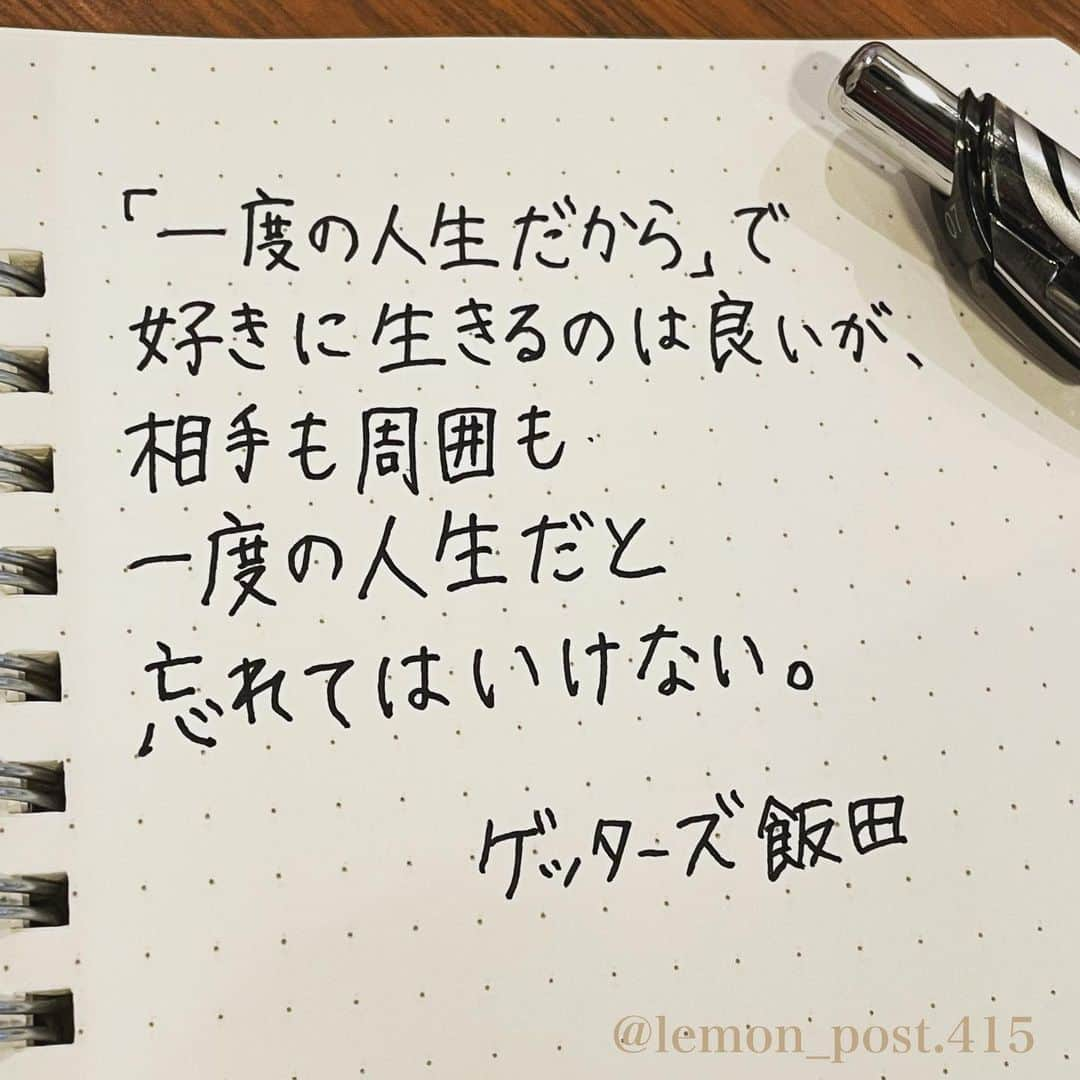 「一度の人生だから」で
好きに生きるのは良いが、
相手も周囲も
一度の人生だと
忘れてはいけない。
ゲッターズ飯田
@lemon_post.415